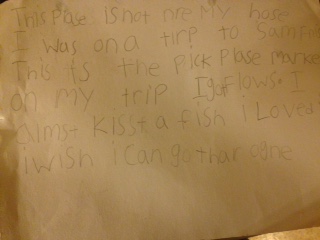 This plase is not nre My hose
I was on a tirp to Samfr
This is the pick Plase Marke
on my trip I got flows. I
almst kisst a fish i Loved
i wish i can go thar ogne